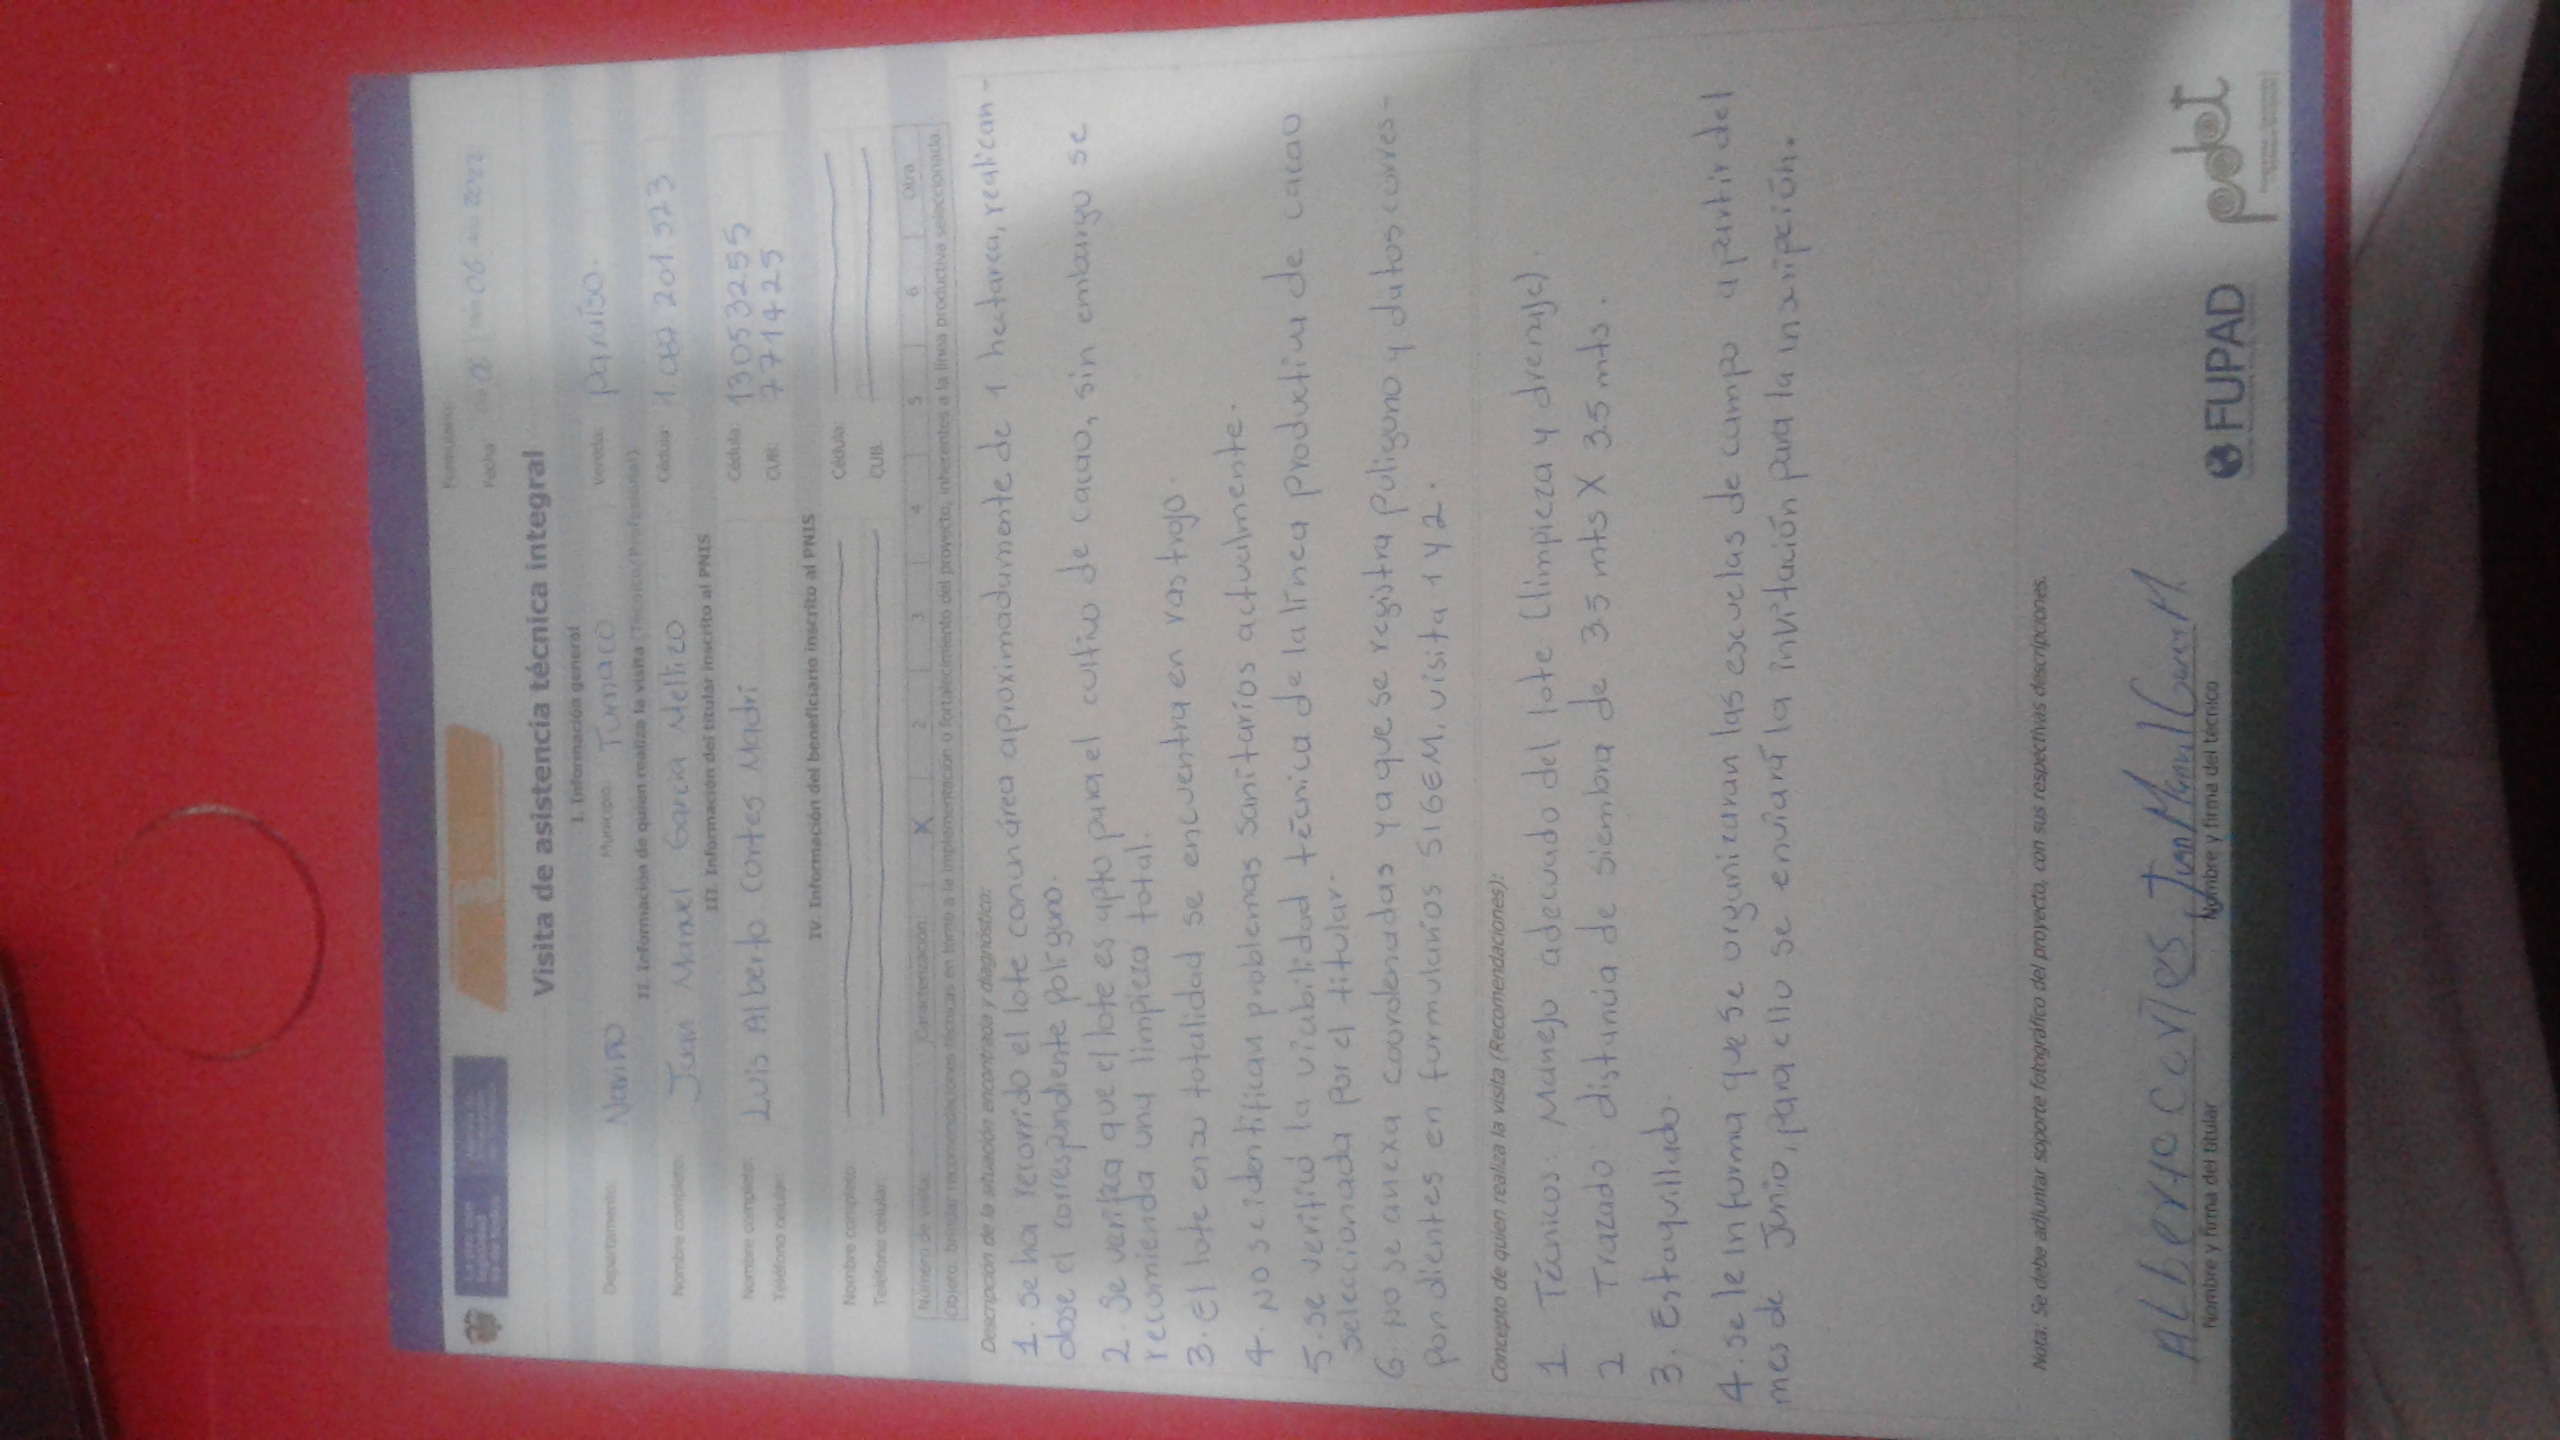 Formulario:
Fecha
06 2022
Visita de asistencia técnica integral
I. Información general
Departamento: Nariño Municipio: Tumaco Vereda: paraíso.
II. Información de quien realiza la visita (Técnico/Profesional)
Nombre completo: Juan Manuel Garcia Mellizo Cédula: 1 087 201 523
III. Información del titular inscrito al PNIS
Nombre completo: Luis Alberto Cortes Madri Cédula: 13053255
Teléfono celular: CUB: 7714425
IV. Información del beneficiario inscrito al PNIS
Nombre completo: Cédula:
Teléfono celular: CUB:
Número de visita: Caracterización: 1 X 2 3 4 5 6 Otra
Objetivo: brindar recomendaciones técnicas en torno a la implementación o fortalecimiento del proyecto, inherentes a la línea productiva seleccionada.
Descripción de la situación encontrada y diagnóstico:
1. se ha recorrido el lote con un área aproximadamente de 1 hectarea, realican-
dose el correspondiente polígono.
2. Se verifica que el lote es apto para el cultivo de cacao, sin embargo se
recomienda una limpieza total.
3. El lote en su totalidad se encuentra en rastrojo.
4. No se identifican problemas sanitarios actualmente.
5. se verificó la viabilidad técnica de la línea productiva de cacao
seleccionada por el titular.
6. No se anexa coordenadas ya que se registra polígono y datos corres-
pondientes en formularios SIGEM, visita 1 y 2.
Concepto de quien realiza la visita (Recomendaciones):
1 Técnicos: Manejo adecuado del lote (limpieza y drenaje).
2 Trazado: distancia de siembra de 3.5 mts X 3.5 mts.
3. Estaquillado.
4. se le informa que se organizaran las escuelas de campo apartir del
mes de Junio, para ello se enviará la invitación para la inscripción.
Nota: Se debe adjuntar soporte fotográfico del proyecto, con sus respectivas descripciones.
Alberto Cortes Juan Manuel Garcia M
Nombre y firma del titular Nombre y firma del técnico
FUPAD pdet